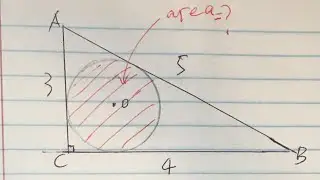 area=?
A
3
5
O
C
4
B